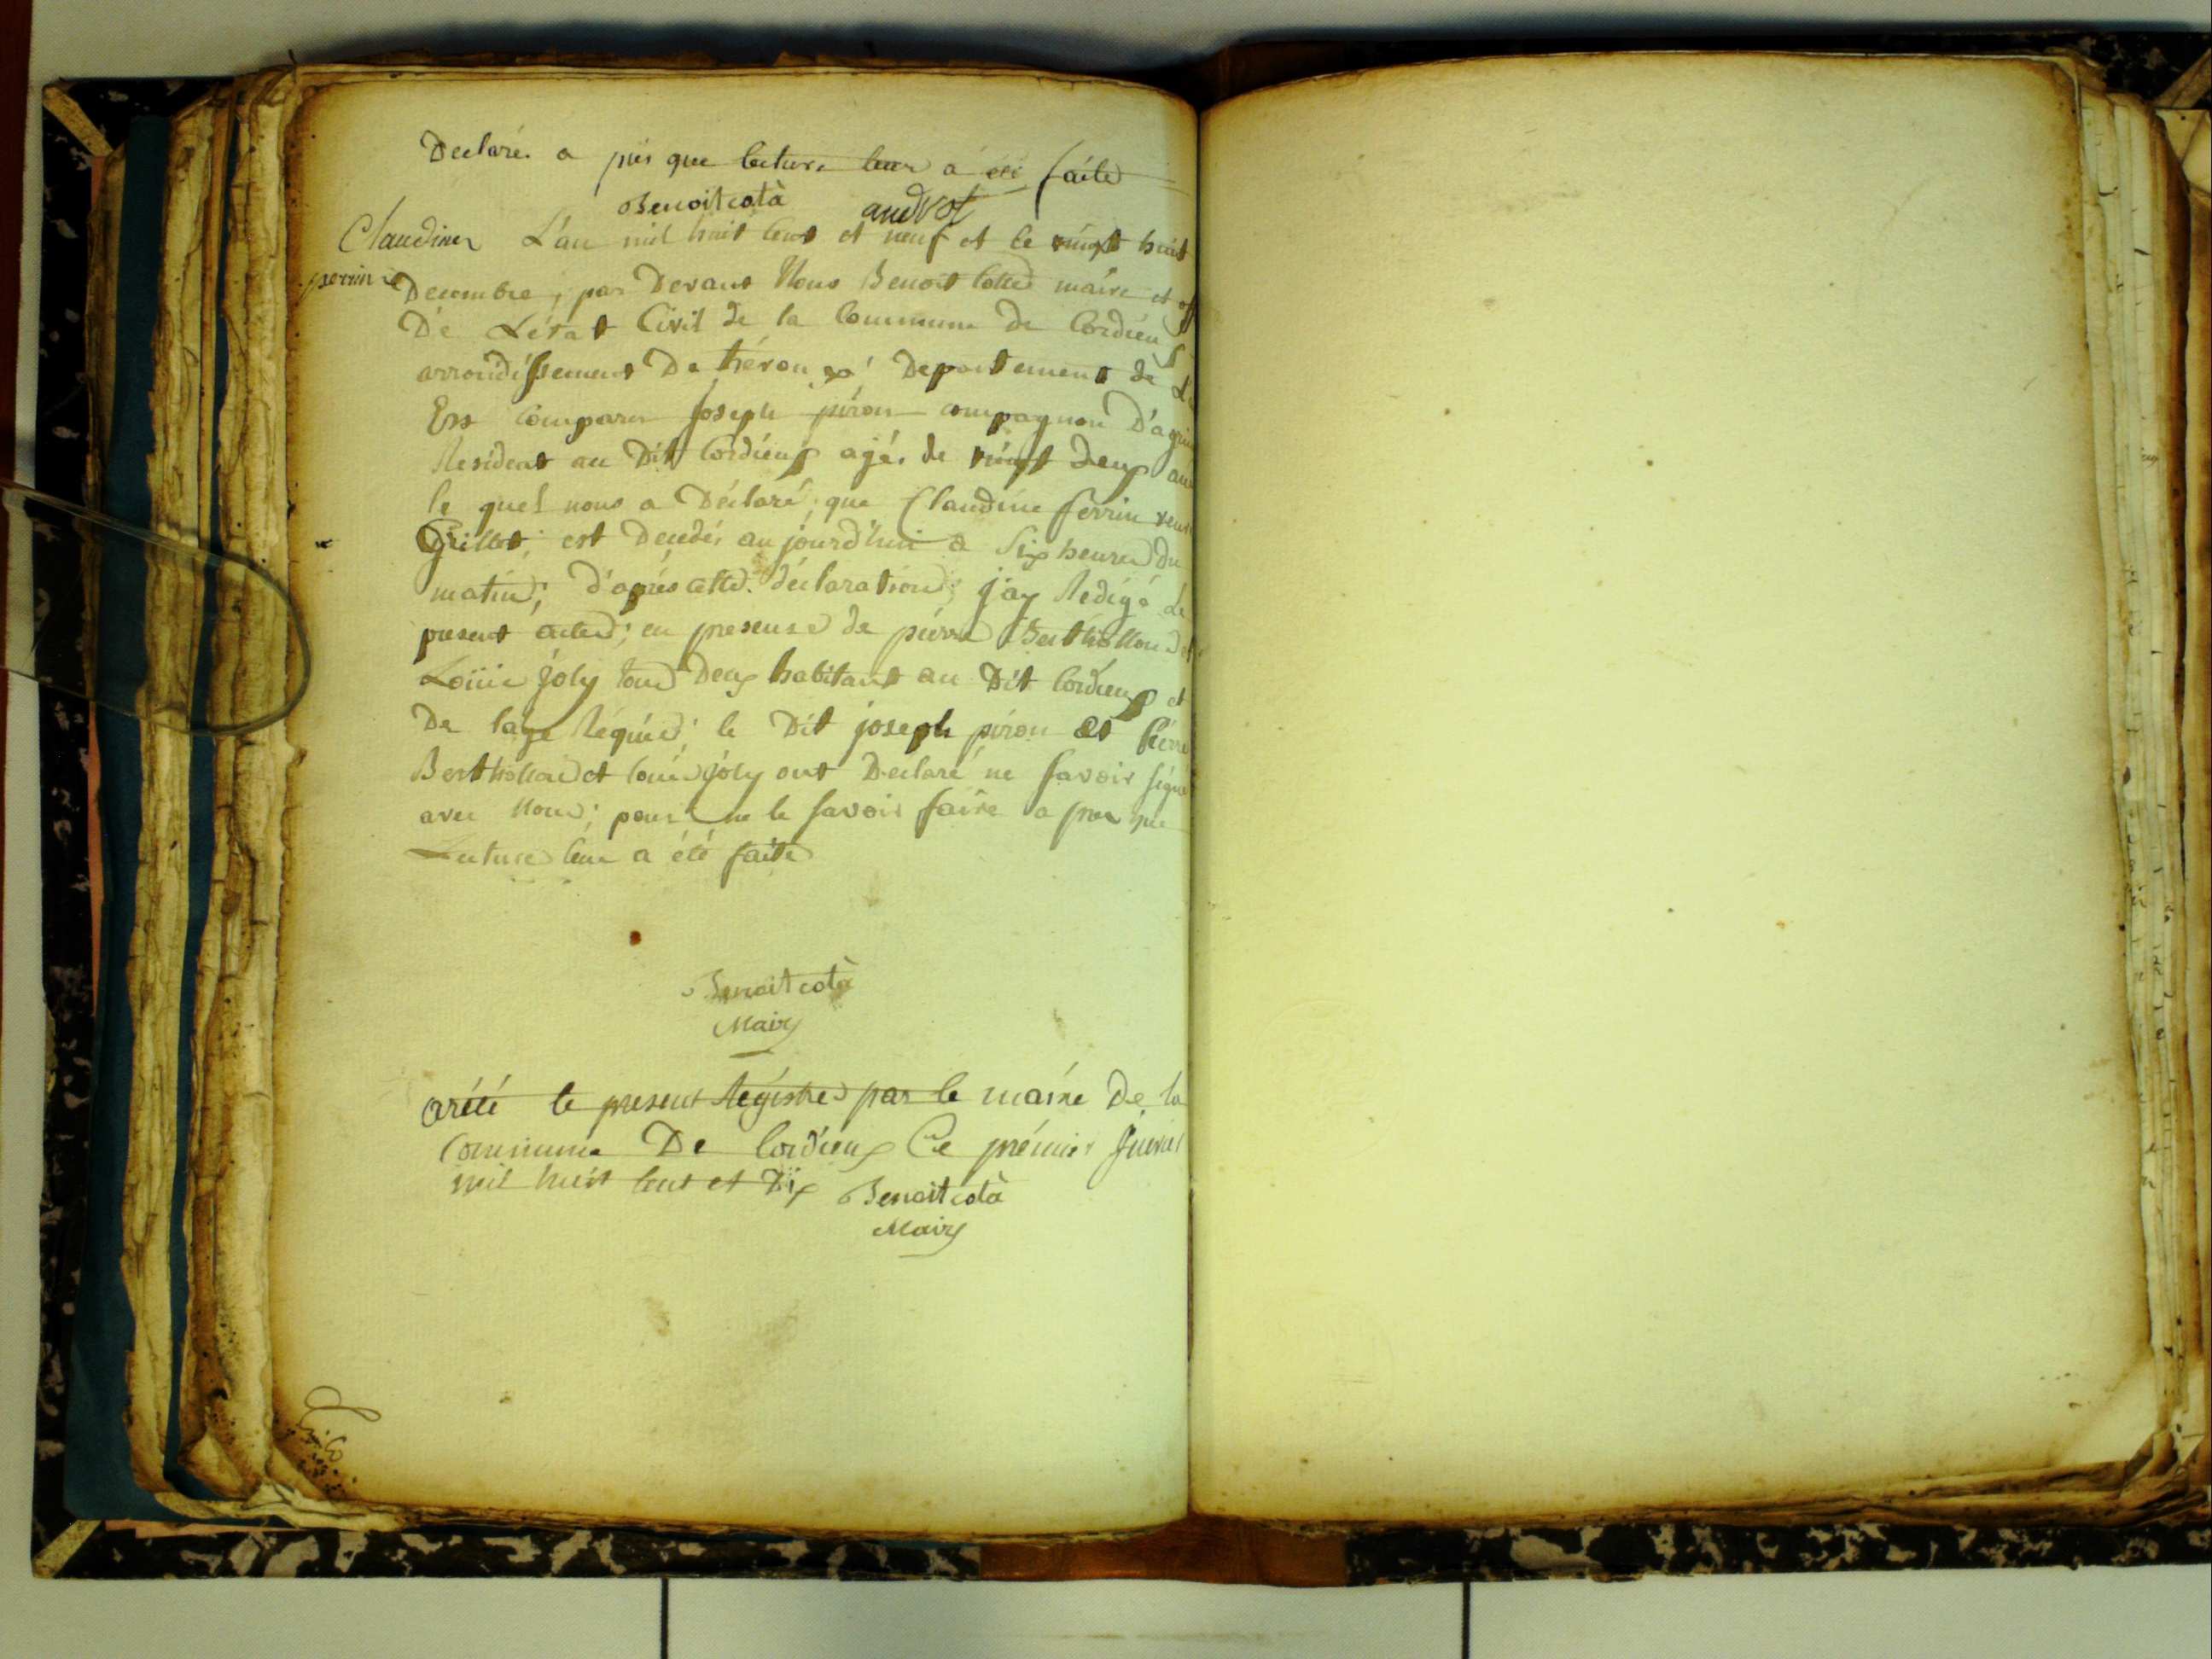 Declaré a prés que lecture leur a été faite
Benoit cotà
Claudine
perrin
L'an mil huit Cent et neuf et le vingt huit
Decembre, par Devant Nous Benoit Cotte maire et off
De L'état Civil de la Commune De Cordieux
arrondissement De trévoux Departement de L'
Est Comparu Joseph piron compagnon D'agri
Resident au Dit Cordieux agé de vingt deux ans
le quel nous a Déclaré, que Claudine perrin veuve
Grillet; est Decedée aujourd'hui a Six heures Du
matin; d'aprés cette déclaration; jay Redigé Le
present acte; en presense de pierre Berthollon et
Loüis joly tous Deux habitant au Dit Cordieux et
De l'age Réquis; le Dit joseph piron et Pierre
Berthollon et louis joly ont Declaré ne savoir signé
avec Nous; pour ne le savoir faire a pres que
Lecture leur a été faite
Benoit cotà
Maire
arété le present Régistre par le maire De la
Commune De Cordieux Ce prémier
mil huit Cent et Dix Benoit cotà
Maire